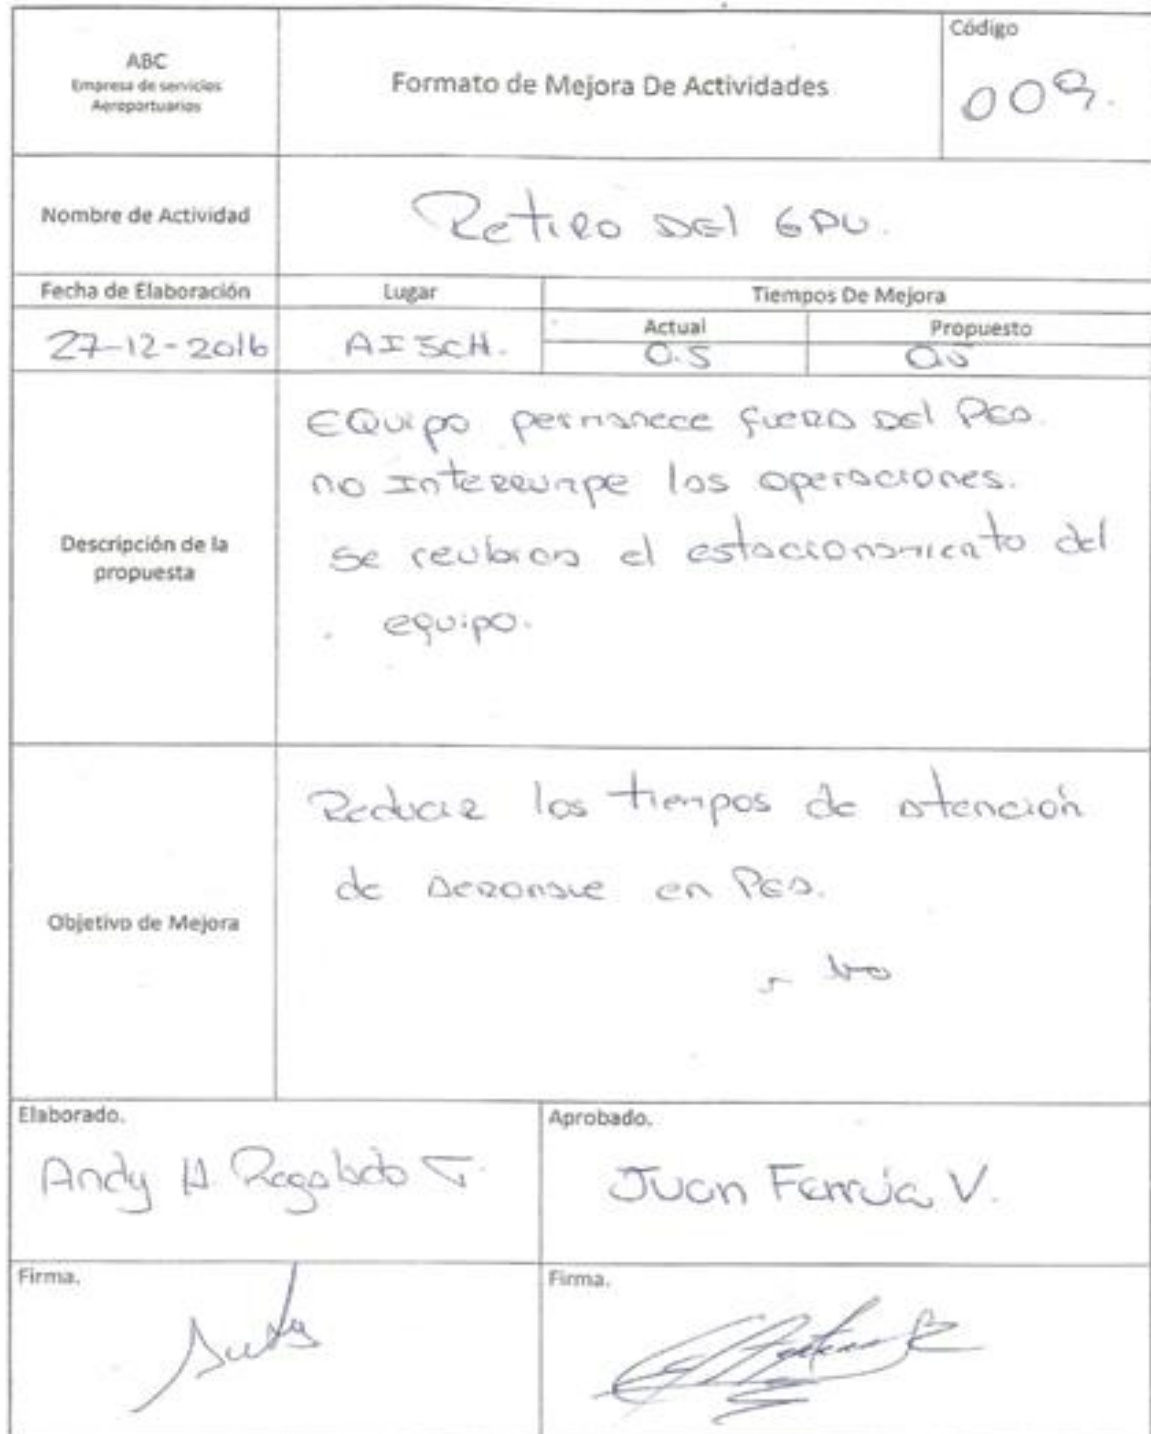 ABC
Empresa de servicios
Aereoportuarios
Formato de Mejora De Actividades
Código
009.
Nombre de Actividad
Retiro del GPU.
Fecha de Elaboración
Lugar
Tiempos De Mejora
27-12-2016
AIJCH.
Actual
Propuesto
0.5
0.5
Descripción de la
propuesta
Equipo permanece fuera del PEA.
no Interrumpe las operaciones.
se reubica el estacionamiento del
equipo.
Objetivo de Mejora
Reducir los tiempos de atención
de aeronave en PEA.
Elaborado.
Andy H. Regalado T.
Aprobado.
Juan Farruia V.
Firma.
Firma.